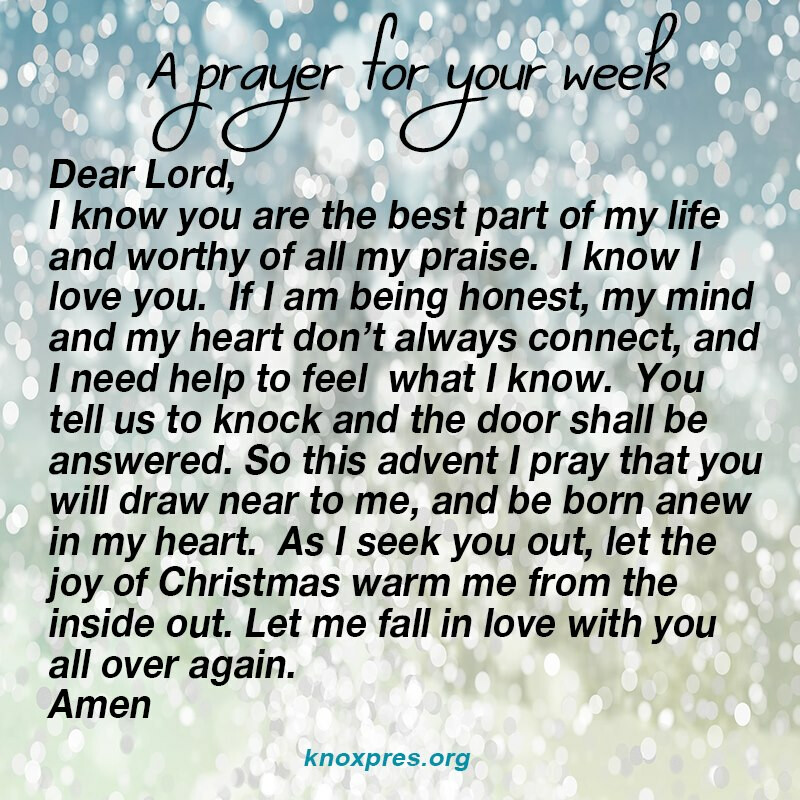 A prayer for your week
Dear Lord,
I know you are the best part of my life
and worthy of all my praise.  I know I
love you.  If I am being honest, my mind
and my heart don’t always connect, and
I need help to feel  what I know.  You
tell us to knock and the door shall be
answered. So this advent I pray that you
will draw near to me, and be born anew
in my heart.  As I seek you out, let the
joy of Christmas warm me from the
inside out. Let me fall in love with you
all over again.
Amen
knoxpres.org